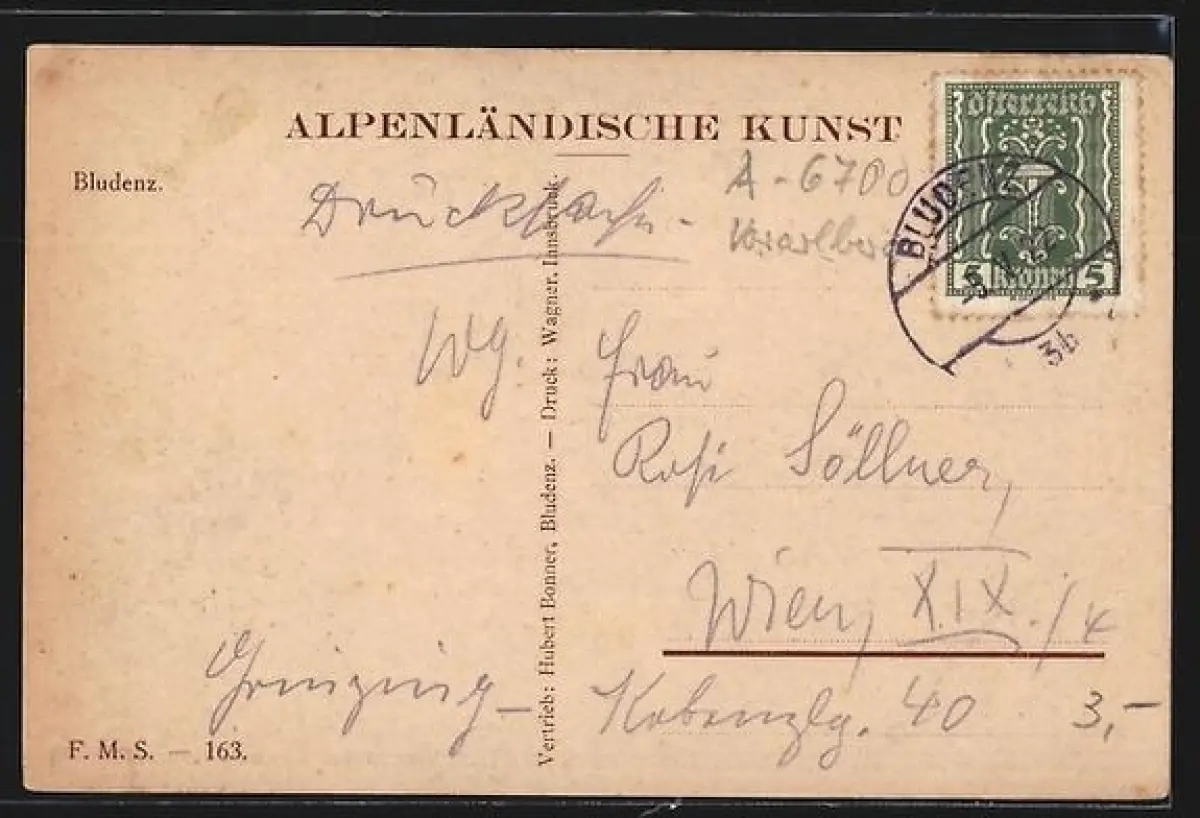 ALPENLÄNDISCHE KUNST
Bludenz.
Drucksache -
A - 6700
Vorarlberg
Österreich
5 Kronen 5
BLUDENZ
3b
Wg. Frau
Rosi Söllner,
Wien, XIX./4
Grinzing - Kobenzlg. 40
3,-
F. M. S. — 163.
Vertrieb: Hubert Bonner, Bludenz. — Druck: Wagner, Innsbruck.